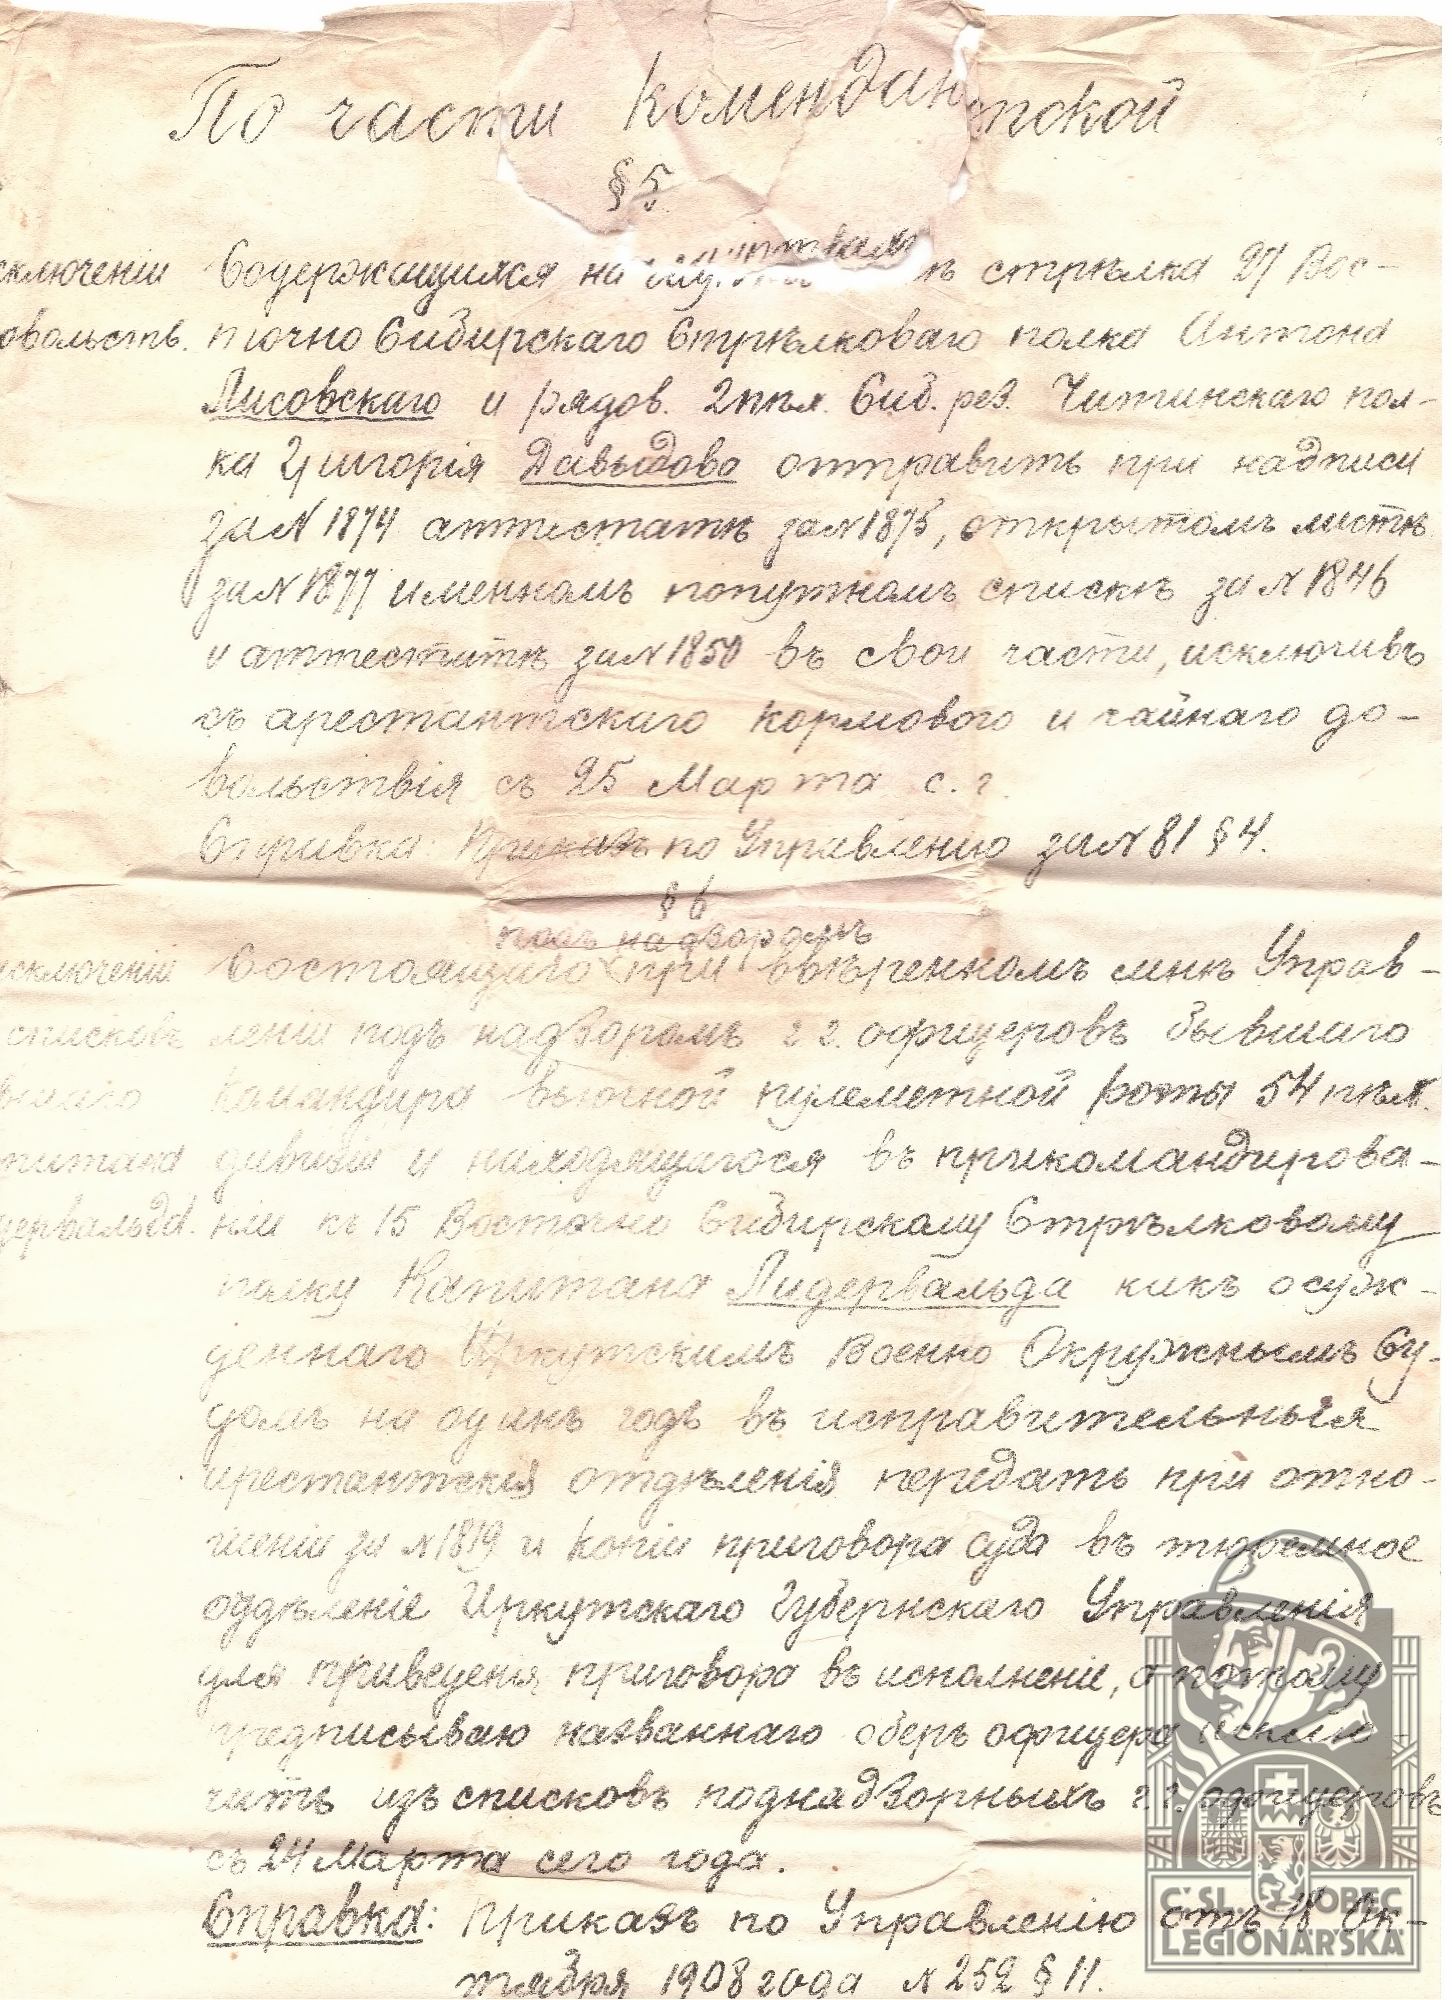 По части Комендантской
§ 5
сключеніи Содержащихся на стрѣлка 27 Вос-
овольств. точно Сибирскаго Стрѣлковаго полка Антона
Лисовскаго и рядов. 2 пѣх. Сиб. рез. Читинскаго пол-
ка Григорія Давыдова отправить при надписи
за № 1874 аттестатѣ за № 1875, открытомъ листѣ
за № 1877 именномъ попутномъ спискѣ за № 1846
и аттестатѣ за № 1850 въ свои части, исключивъ
съ арестантскаго кормового и чайнаго до-
вольствія съ 25 Марта с. г.
Справка: Приказъ по Управленію за № 81 § 4.
§ 6
подъ надзоромъ
исключеніи Состоящаго при ввѣренномъ мнѣ Управ-
списковъ леніи подъ надзоромъ г.г. офицеровъ бывшаго
вшаго Командира вьючной пулеметной роты 54 пѣх.
питана дивизіи и находящагося въ прикомандирова-
дервальда. ніи къ 15 Восточно Сибирскому Стрѣлковому
полку Капитана Лидервальда какъ осуж-
деннаго Иркутскимъ Военно Окружнымъ Су-
домъ на одинъ годъ въ исправительныя
арестантскія отдѣленія передать при отно-
шеніи за № 1819 и копіи приговора суда въ тюремное
отдѣленіе Иркутскаго Губернскаго Управленія
для приведенія приговора въ исполненіе, а потому
предписываю названнаго оберъ офицера исклю-
чить изъ списковъ поднадзорныхъ г.г. офицеровъ
съ 24 Марта сего года.
Справка: Приказъ по Управленію отъ 18 Ок-
тября 1908 года № 252 § 11.
ČSL. OBEC
LEGIONÁŘSKÁ